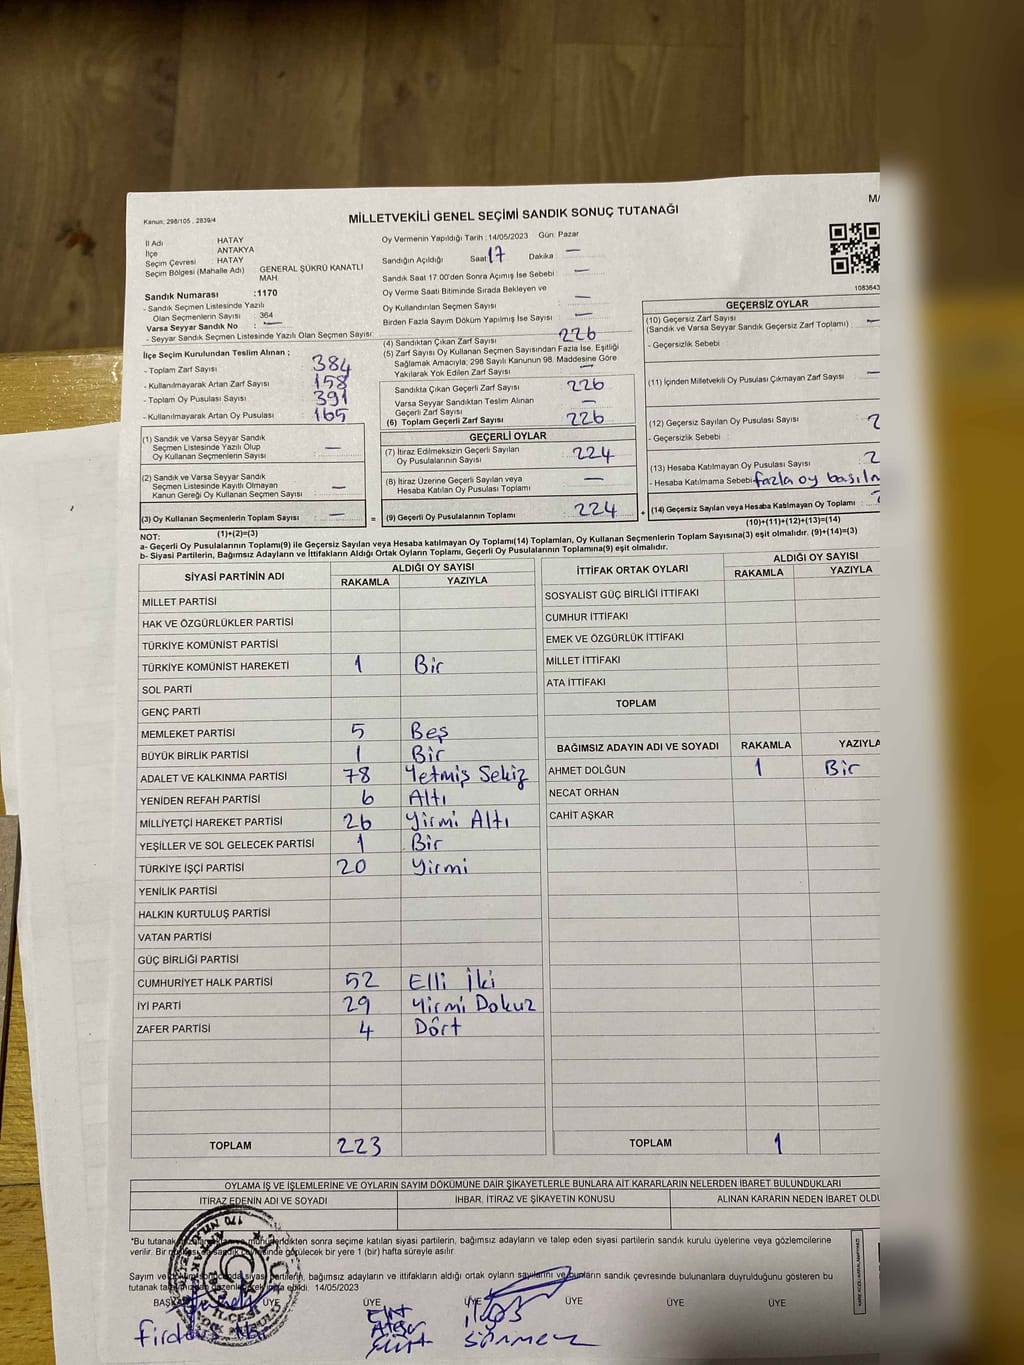 Kanun: 298/105 , 2839/4
MİLLETVEKİLİ GENEL SEÇİMİ SANDIK SONUÇ TUTANAĞI
İl Adı HATAY
İlçe ANTAKYA
Seçim Çevresi HATAY
Seçim Bölgesi (Mahalle Adı) GENERAL ŞÜKRÜ KANATLI
MAH
Sandık Numarası :1170
- Sandık Seçmen Listesinde Yazılı
Olan Seçmenlerin Sayısı : 364
Varsa Seyyar Sandık No : —
- Seyyar Sandık Seçmen Listesinde Yazılı Olan Seçmen Sayısı:
İlçe Seçim Kurulundan Teslim Alınan ;
- Toplam Zarf Sayısı 384
- Kullanılmayarak Artan Zarf Sayısı 158
- Toplam Oy Pusulası Sayısı 391
- Kullanılmayarak Artan Oy Pusulası 165
(1) Sandık ve Varsa Seyyar Sandık
Seçmen Listesinde Yazılı Olup
Oy Kullanan Seçmenlerin Sayısı —
(2) Sandık ve Varsa Seyyar Sandık
Seçmen Listesinde Kayıtlı Olmayan
Kanun Gereği Oy Kullanan Seçmen Sayısı —
(3) Oy Kullanan Seçmenlerin Toplam Sayısı : —
(1)+(2)=(3)
Oy Vermenin Yapıldığı Tarih : 14/05/2023 Gün: Pazar
Sandığın Açıldığı Saat 17 Dakika : —
Sandık Saat 17.00'den Sonra Açımış İse Sebebi : —
Oy Verme Saati Bitiminde Sırada Bekleyen ve
Oy Kullandırılan Seçmen Sayısı : —
Birden Fazla Sayım Döküm Yapılmış İse Sayısı : —
(4) Sandıktan Çıkan Zarf Sayısı 226
(5) Zarf Sayısı Oy Kullanan Seçmen Sayısından Fazla İse, Eşitliği
Sağlamak Amacıyla; 298 Sayılı Kanunun 98. Maddesine Göre
Yakılarak Yok Edilen Zarf Sayısı : —
Sandıkta Çıkan Geçerli Zarf Sayısı 226
Varsa Seyyar Sandıktan Teslim Alınan
Geçerli Zarf Sayısı —
(6) Toplam Geçerli Zarf Sayısı 226
GEÇERLİ OYLAR
(7) İtiraz Edilmeksizin Geçerli Sayılan
Oy Pusulalarının Sayısı 224
(8) İtiraz Üzerine Geçerli Sayılan veya
Hesaba Katılan Oy Pusulası Toplamı —
= (9) Geçerli Oy Pusulalarının Toplamı 224 +
M/
108364
GEÇERSİZ OYLAR
(10) Geçersiz Zarf Sayısı
(Sandık ve Varsa Seyyar Sandık Geçersiz Zarf Toplamı) : —
- Geçersizlik Sebebi
(11) İçinden Milletvekili Oy Pusulası Çıkmayan Zarf Sayısı : —
(12) Geçersiz Sayılan Oy Pusulası Sayısı
- Geçersizlik Sebebi :
(13) Hesaba Katılmayan Oy Pusulası Sayısı 2
- Hesaba Katılmama Sebebi fazla oy basılm
(14) Geçersiz Sayılan veya Hesaba Katılmayan Oy Toplamı :
(10)+(11)+(12)+(13)=(14)
NOT:
a- Geçerli Oy Pusulalarının Toplamı(9) ile Geçersiz Sayılan veya Hesaba katılmayan Oy Toplamı(14) Toplamları, Oy Kullanan Seçmenlerin Toplam Sayısına(3) eşit olmalıdır. (9)+(14)=(3)
b- Siyasi Partilerin, Bağımsız Adayların ve İttifakların Aldığı Ortak Oyların Toplamı, Geçerli Oy Pusulalarının Toplamına(9) eşit olmalıdır.
SİYASİ PARTİNİN ADI ALDIĞI OY SAYISI
RAKAMLA YAZIYLA
MİLLET PARTİSİ
HAK VE ÖZGÜRLÜKLER PARTİSİ
TÜRKİYE KOMÜNİST PARTİSİ
TÜRKİYE KOMÜNİST HAREKETİ 1 Bir
SOL PARTİ
GENÇ PARTİ
MEMLEKET PARTİSİ 5 Beş
BÜYÜK BİRLİK PARTİSİ 1 Bir
ADALET VE KALKINMA PARTİSİ 78 Yetmiş Sekiz
YENİDEN REFAH PARTİSİ 6 Altı
MİLLİYETÇİ HAREKET PARTİSİ 26 Yirmi Altı
YEŞİLLER VE SOL GELECEK PARTİSİ 1 Bir
TÜRKİYE İŞÇİ PARTİSİ 20 Yirmi
YENİLİK PARTİSİ
HALKIN KURTULUŞ PARTİSİ
VATAN PARTİSİ
GÜÇ BİRLİĞİ PARTİSİ
CUMHURİYET HALK PARTİSİ 52 Elli İki
İYİ PARTİ 29 Yirmi Dokuz
ZAFER PARTİSİ 4 Dört
TOPLAM 223
İTTİFAK ORTAK OYLARI ALDIĞI OY SAYISI
RAKAMLA YAZIYLA
SOSYALIST GÜÇ BİRLİĞİ İTTİFAKI
CUMHUR İTTİFAKI
EMEK VE ÖZGÜRLÜK İTTİFAKI
MİLLET İTTİFAKI
ATA İTTİFAKI
TOPLAM
BAĞIMSIZ ADAYIN ADI VE SOYADI RAKAMLA YAZIYLA
AHMET DOLĞUN 1 Bir
NECAT ORHAN
CAHİT AŞKAR
TOPLAM 1
OYLAMA İŞ VE İŞLEMLERİNE VE OYLARIN SAYIM DÖKÜMÜNE DAİR ŞİKAYETLERLE BUNLARA AİT KARARLARIN NELERDEN İBARET BULUNDUKLARI
İTİRAZ EDENİN ADI VE SOYADI İHBAR, İTİRAZ VE ŞİKAYETİN KONUSU ALINAN KARARIN NEDEN İBARET OLDU
*Bu tutanak sonra seçime katılan siyasi partilerin, bağımsız adayların ve talep eden siyasi partilerin sandık kurulu üyelerine veya gözlemcilerine
verilir. Bir görülecek bir yere 1 (bir) hafta süreyle asılır.
Sayım ve siyasi partilerin, bağımsız adayların ve ittifakların aldığı ortak oyların sayılarını ve bunların sandık çevresinde bulunanlara duyrulduğunu gösteren bu
tutanak 14/05/2023
BAŞKAN ÜYE ÜYE ÜYE ÜYE ÜYE ÜYE
Sönmez